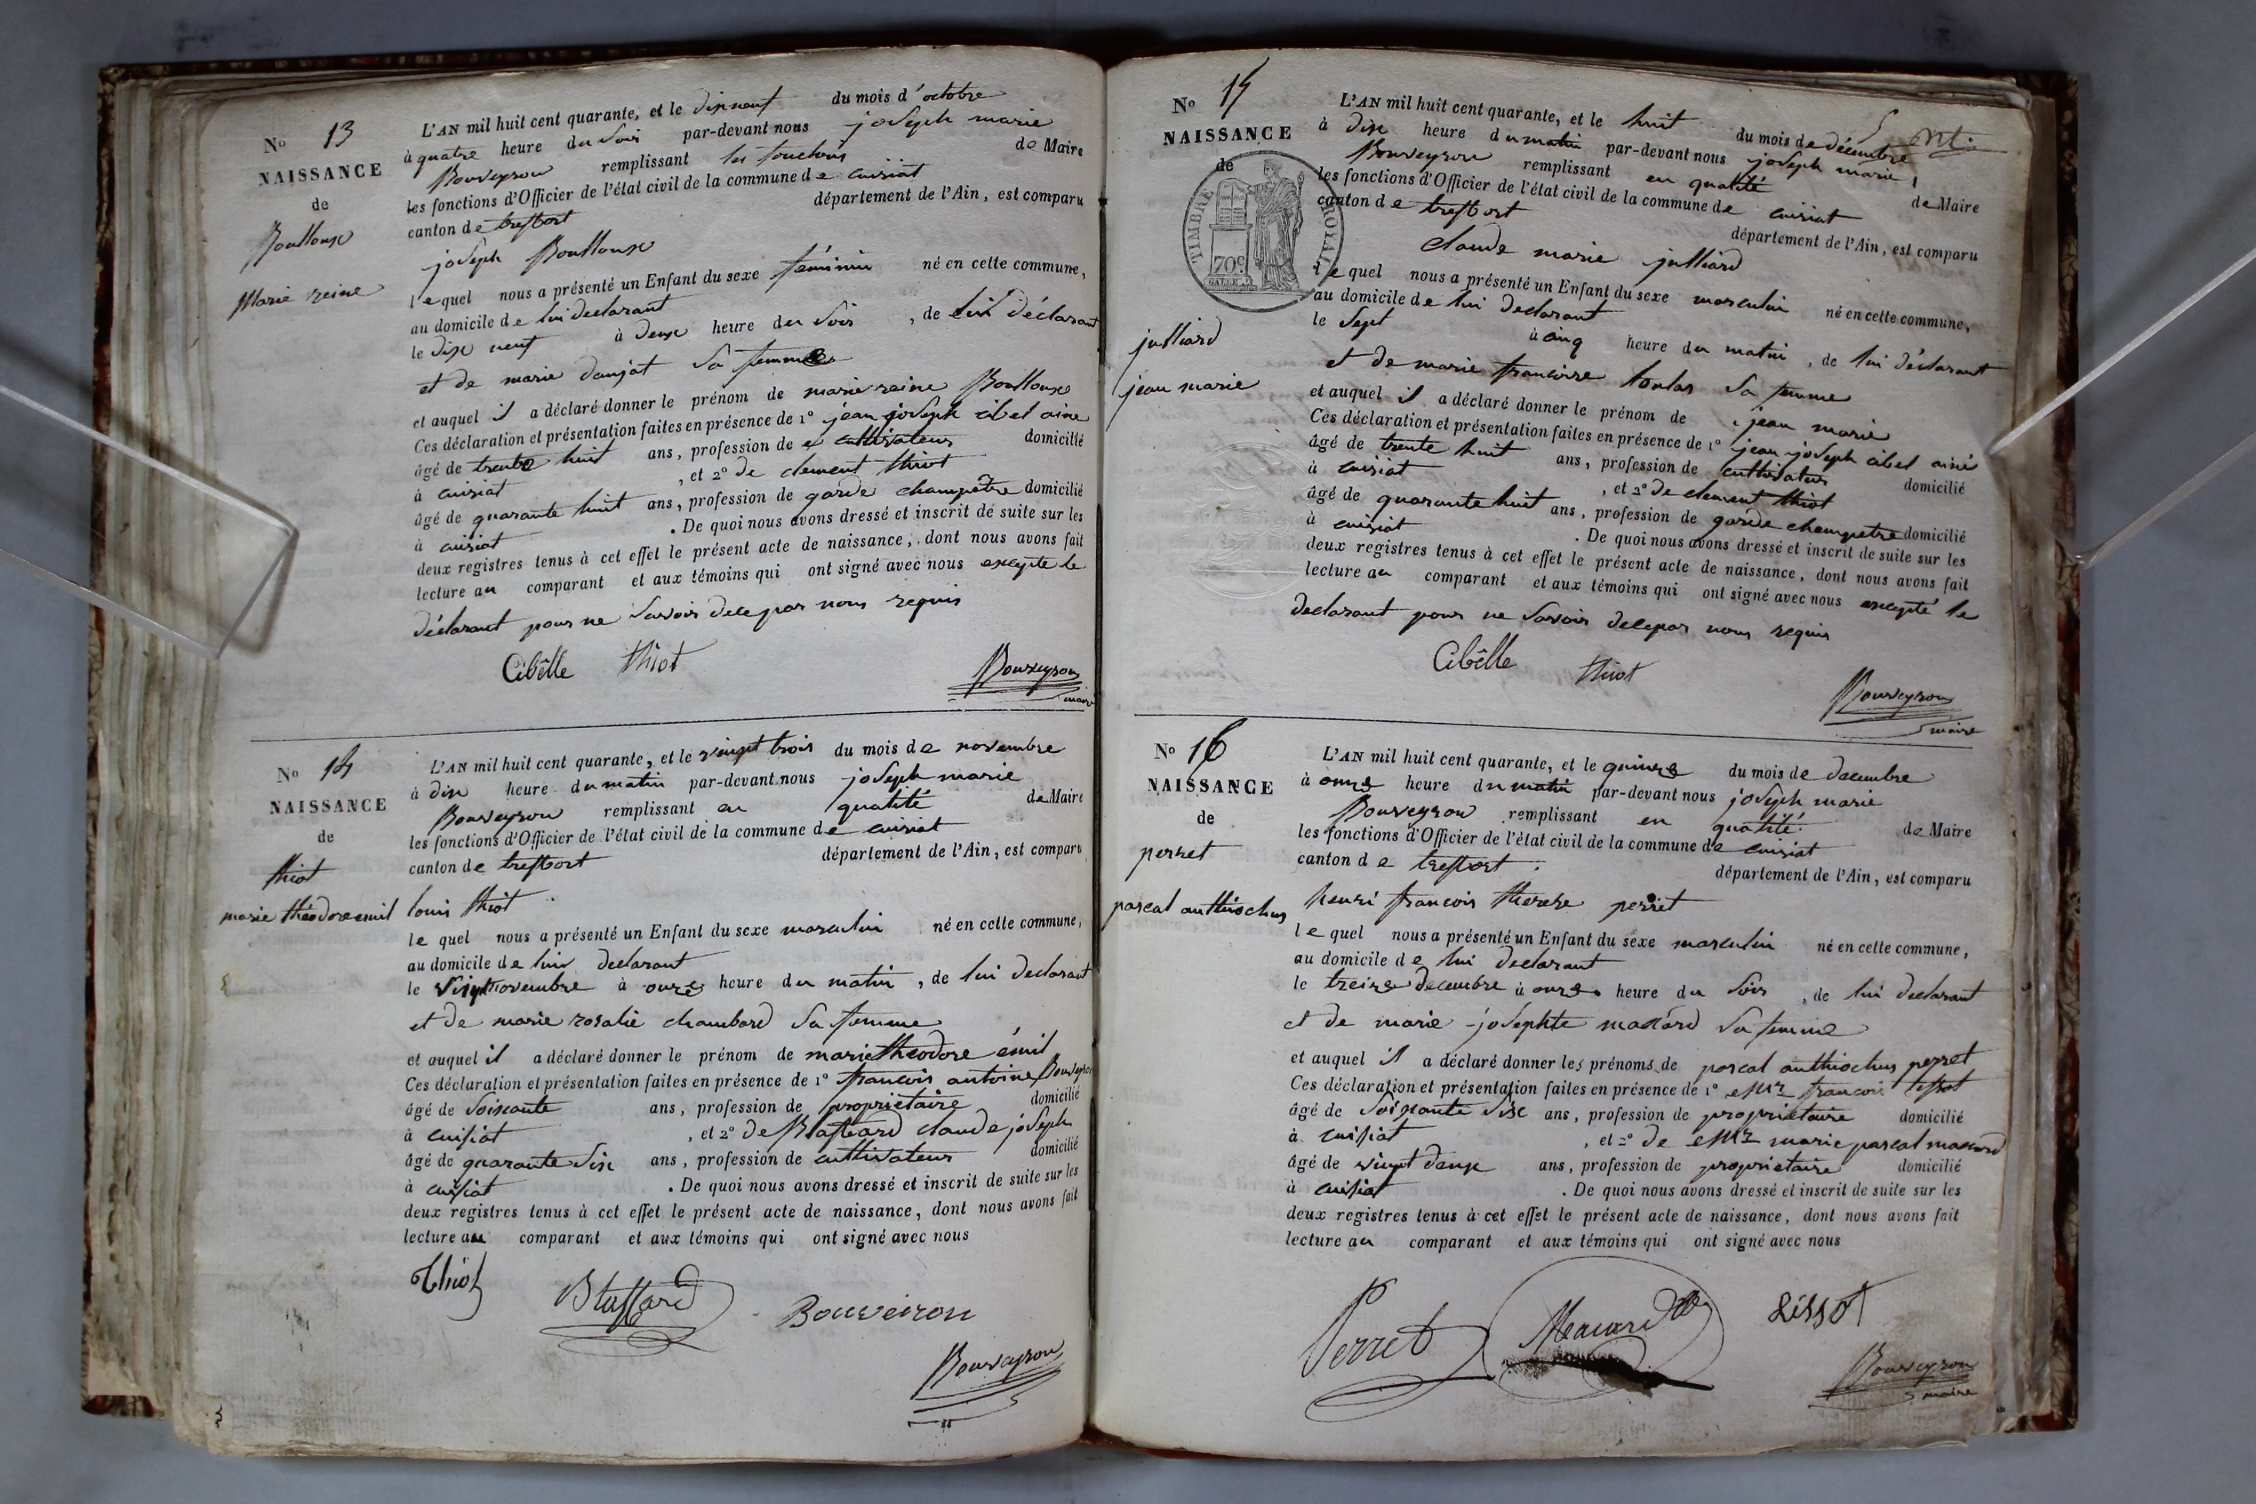 No 13
NAISSANCE
de
Boulloux
Marie reine
L'AN mil huit cent quarante, et le dix neuf du mois d'octobre
à quatre heure du soir par-devant nous joseph marie
Bouveyron remplissant les fonctions de Maire
les fonctions d'Officier de l'état civil de la commune de cuisiat
canton de treffort département de l'Ain, est comparu
joseph Boulloux
lequel nous a présenté un Enfant du sexe féminin né en cette commune,
au domicile de lui declarant
le dix neuf à deux heure du soir, de lui déclarant
et de marie danjat sa femme
et auquel il a déclaré donner le prénom de marie reine Boulloux
Ces déclaration et présentation faites en présence de 1° jean joseph cibel aine
âgé de trente huit ans, profession de cultivateur domicilié
à cuisiat, et 2° de clement thiot
âgé de quarante huit ans, profession de garde champêtre domicilié
à cuisiat. De quoi nous avons dressé et inscrit de suite sur les
deux registres tenus à cet effet le présent acte de naissance, dont nous avons fait
lecture au comparant et aux témoins qui ont signé avec nous excepte le
déclarant pour ne savoir dece par nous requis
Cibélle thiot Bouveyron
maire
No 14
NAISSANCE
de
thiot
marie théodore emil
L'AN mil huit cent quarante, et le vingt trois du mois de novembre
à dix heure du matin par-devant nous joseph marie
Bouveyron remplissant en qualité de Maire
les fonctions d'Officier de l'état civil de la commune de cuisiat
canton de treffort département de l'Ain, est comparu
louis thiot
lequel nous a présenté un Enfant du sexe masculin né en cette commune,
au domicile de lui declarant
le vingt novembre à onze heure du matin, de lui declarant
et de marie rosalie chambard sa femme
et auquel il a déclaré donner le prénom de marie théodore émil
Ces déclaration et présentation faites en présence de 1° francois antoine Bouveyron
âgé de soixante ans, profession de proprietaire domicilié
à cuisiat, et 2° de Blaffard claude joseph
âgé de quarante six ans, profession de cultivateur domicilié
à cuisiat. De quoi nous avons dressé et inscrit de suite sur les
deux registres tenus à cet effet le présent acte de naissance, dont nous avons fait
lecture au comparant et aux témoins qui ont signé avec nous
Thiot Blaffard Bouveiron
Bouveyron
No 15
NAISSANCE
de
TIMBRE ROYAL
70c.
julliard
jean marie
L'AN mil huit cent quarante, et le huit du mois de décembre
à dix heure du matin par-devant nous joseph marie
Bouveyron remplissant en qualité de Maire
les fonctions d'Officier de l'état civil de la commune de cuisiat
canton de treffort département de l'Ain, est comparu
claude marie julliard
lequel nous a présenté un Enfant du sexe masculin né en cette commune,
au domicile de lui declarant
le sept à cinq heure du matin, de lui déclarant
et de marie francoise loulas sa femme
et auquel il a déclaré donner le prénom de jean marie
Ces déclaration et présentation faites en présence de 1° jean joseph cibel ainé
âgé de trente huit ans, profession de cultivateur domicilié
à cuisiat, et 2° de clement thiot
âgé de quarante huit ans, profession de garde champetre domicilié
à cuisiat. De quoi nous avons dressé et inscrit de suite sur les
deux registres tenus à cet effet le présent acte de naissance, dont nous avons fait
lecture au comparant et aux témoins qui ont signé avec nous excepté le
declarant pour ne savoir dece par nous requis
Cibélle thiot
Bouveyron
maire
No 16
NAISSANCE
de
perret
pascal anthiochus
L'AN mil huit cent quarante, et le quinze du mois de decembre
à onze heure du matin par-devant nous joseph marie
Bouveyron remplissant en qualité de Maire
les fonctions d'Officier de l'état civil de la commune de cuisiat
canton de treffort département de l'Ain, est comparu
henri francois therese perret
lequel nous a présenté un Enfant du sexe masculin né en cette commune,
au domicile de lui declarant
le treize decembre à onze heure du soir, de lui declarant
et de marie josephte massard sa femme
et auquel il a déclaré donner les prénoms de pascal anthiochus perret
Ces déclaration et présentation faites en présence de 1° Mr francois tissot
âgé de soixante six ans, profession de proprietaire domicilié
à cuisiat, et 2° de Mr marie pascal massard
âgé de vingt deux ans, profession de proprietaire domicilié
à cuisiat. De quoi nous avons dressé et inscrit de suite sur les
deux registres tenus à cet effet le présent acte de naissance, dont nous avons fait
lecture au comparant et aux témoins qui ont signé avec nous
Perret Tissot
Bouveyron
maire